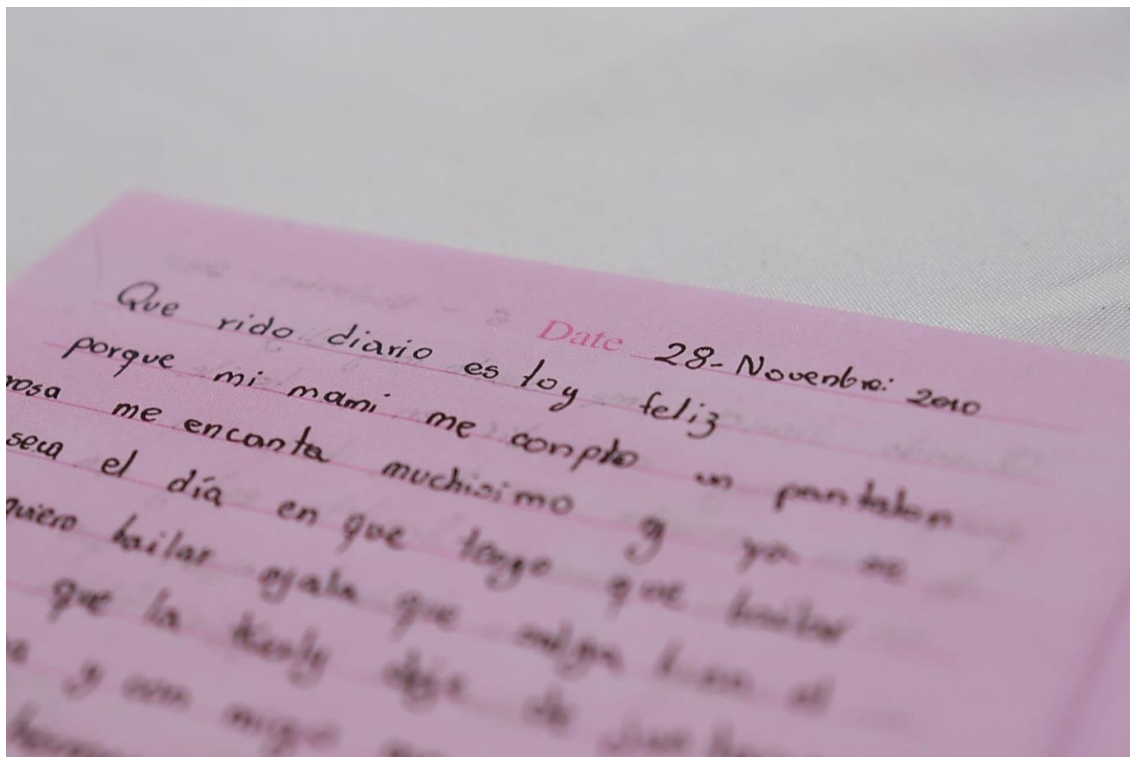 Date 28-Novenbre: 2010
Que rido diario es toy feliz
porque mi mami me conpro un pantalon
rosa me encanta muchisimo y ya se
seca el día en que tengo que bailar
quiero bailar ojala que salga bien el
que la deje de
y con migo